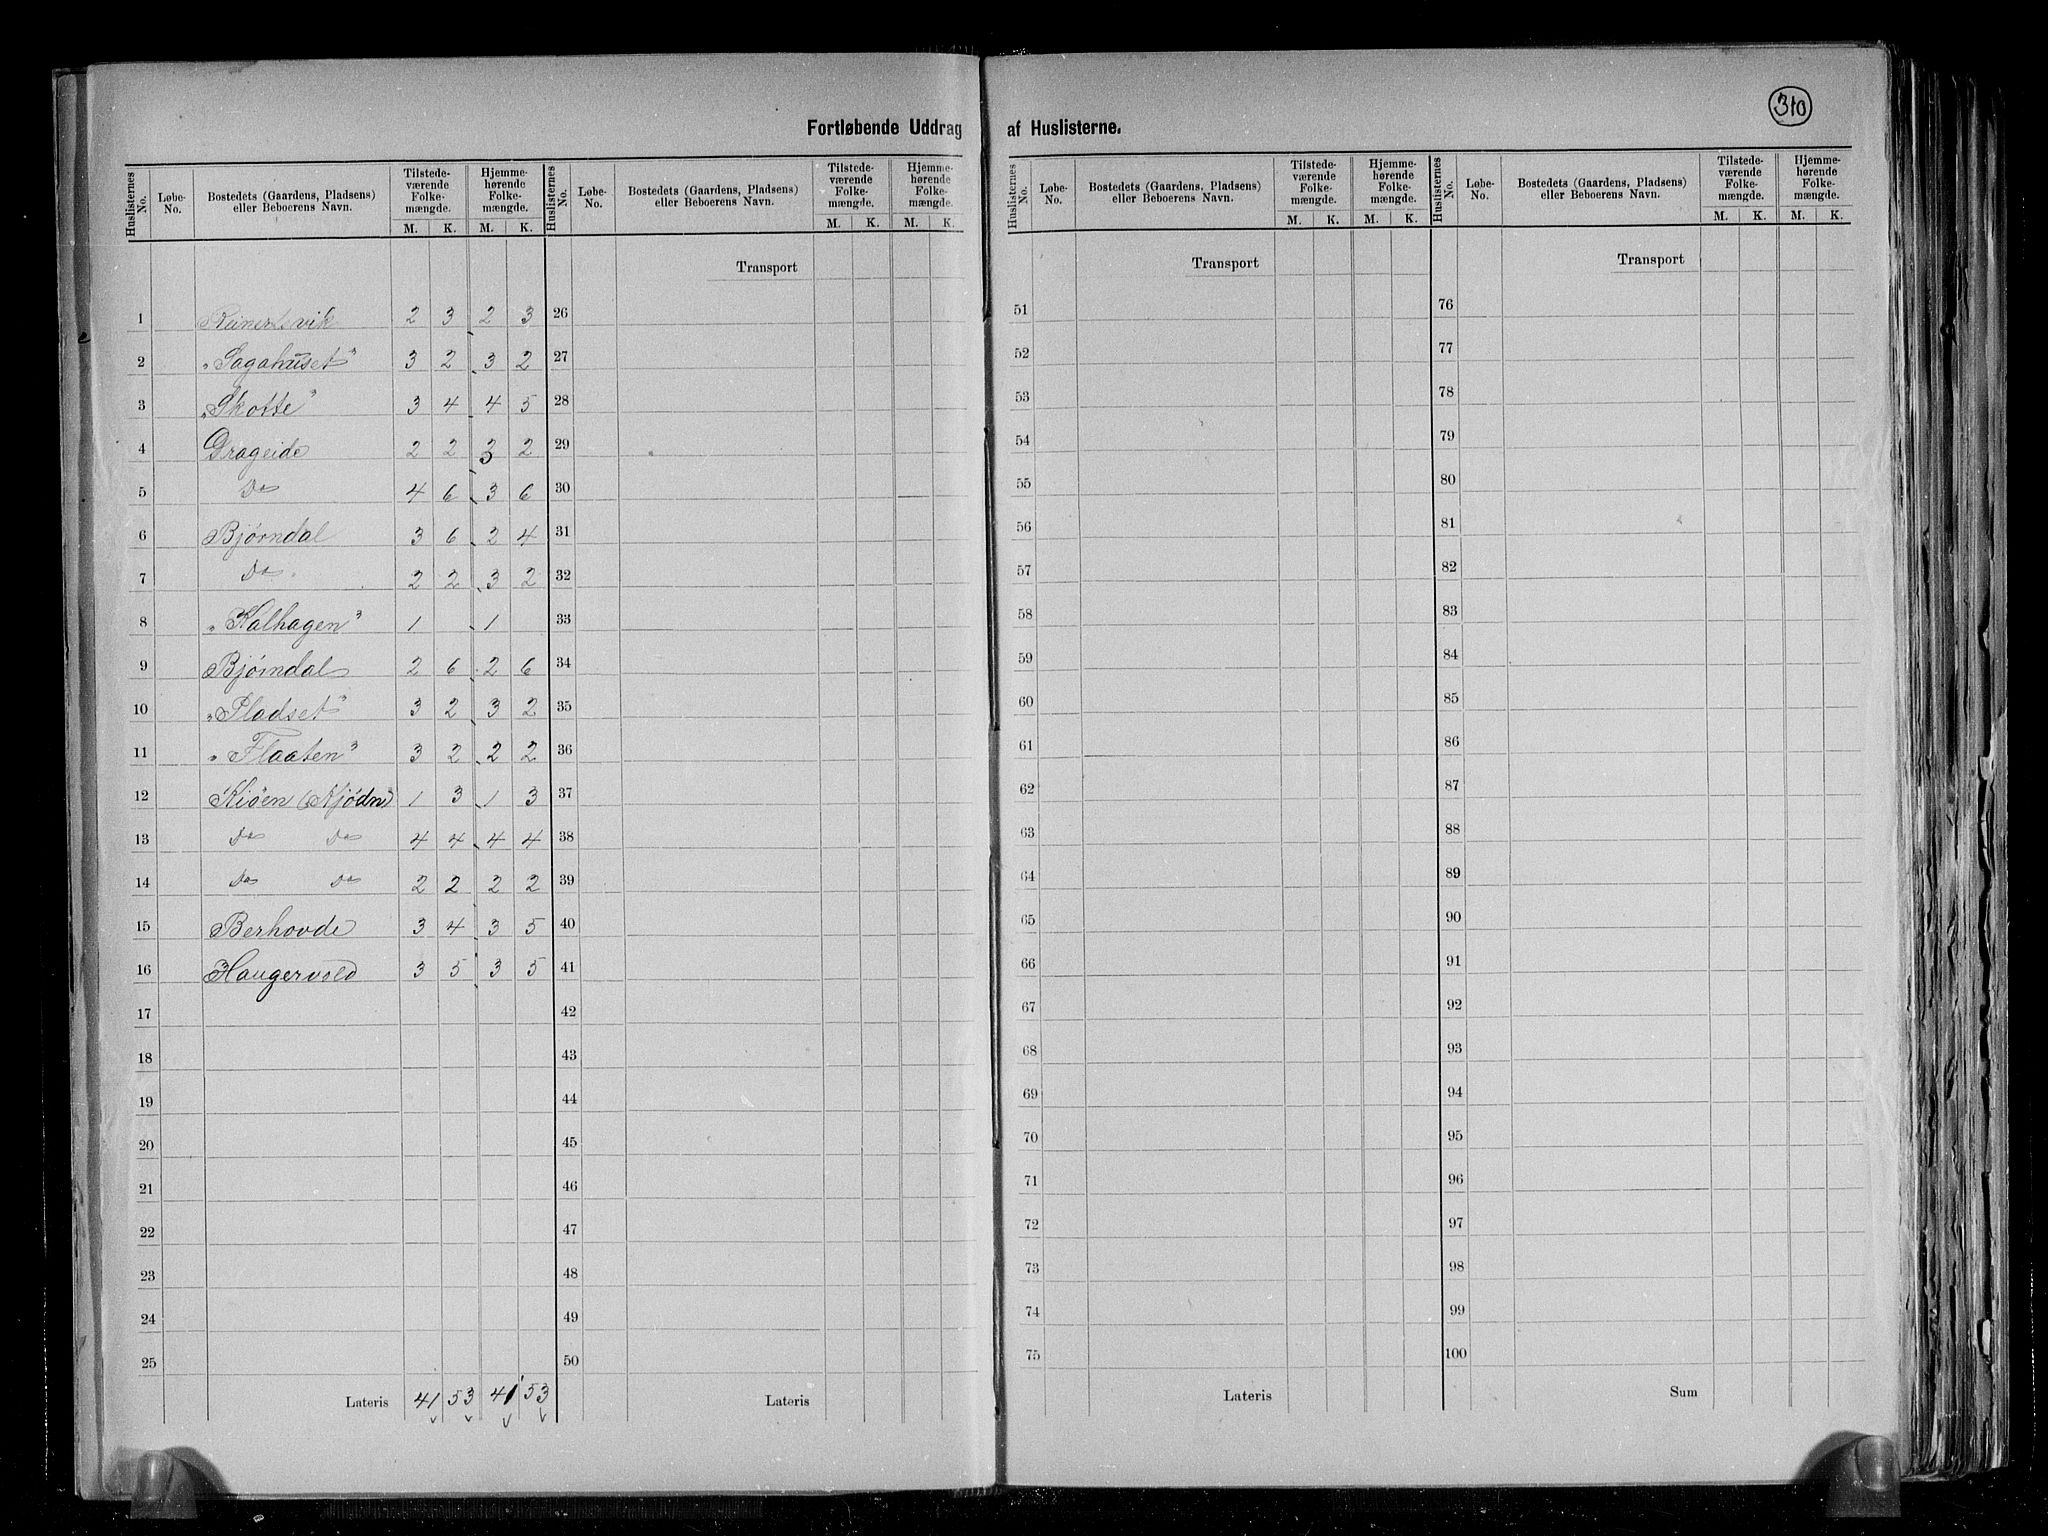 310
Fortløbende Uddrag af Huslisterne.
Huslisternes No. | Løbe-No. | Bostedets (Gaardens, Pladsens) eller Beboerens Navn. | Tilstedeværende Folkemængde. M. K. | Hjemmehørende Folkemængde. M. K.
Huslisternes No. | Løbe-No. | Bostedets (Gaardens, Pladsens) eller Beboerens Navn. | Tilstedeværende Folkemængde. M. K. | Hjemmehørende Folkemængde. M. K.
Huslisternes No. | Løbe-No. | Bostedets (Gaardens, Pladsens) eller Beboerens Navn. | Tilstedeværende Folkemængde. M. K. | Hjemmehørende Folkemængde. M. K.
Huslisternes No. | Løbe-No. | Bostedets (Gaardens, Pladsens) eller Beboerens Navn. | Tilstedeværende Folkemængde. M. K. | Hjemmehørende Folkemængde. M. K.
1 Reinertsvik 2 3 2 3
2 „Sagahuset" 3 2 3 2
3 „Skotte" 3 4 4 5
4 Drageide 2 2 3 2
5 Do 4 6 3 6
6 Bjørndal 3 6 2 4
7 Do 2 2 3 2
8 „Kalhagen" 1 1
9 Bjørndal 2 6 2 6
10 „Pladset" 3 2 3 2
11 „Flaaten" 3 2 2 2
12 Kiöen (Kjödn) 1 3 1 3
13 Do Do 4 4 4 4
14 Do Do 2 2 2 2
15 Berhovde 3 4 3 5
16 Haugervold 3 5 3 5
17
18
19
20
21
22
23
24
25
Lateris 41 53 41 53
Transport
26
27
28
29
30
31
32
33
34
35
36
37
38
39
40
41
42
43
44
45
46
47
48
49
50
Lateris
Transport
51
52
53
54
55
56
57
58
59
60
61
62
63
64
65
66
67
68
69
70
71
72
73
74
75
Lateris
Transport
76
77
78
79
80
81
82
83
84
85
86
87
88
89
90
91
92
93
94
95
96
97
98
99
100
Sum